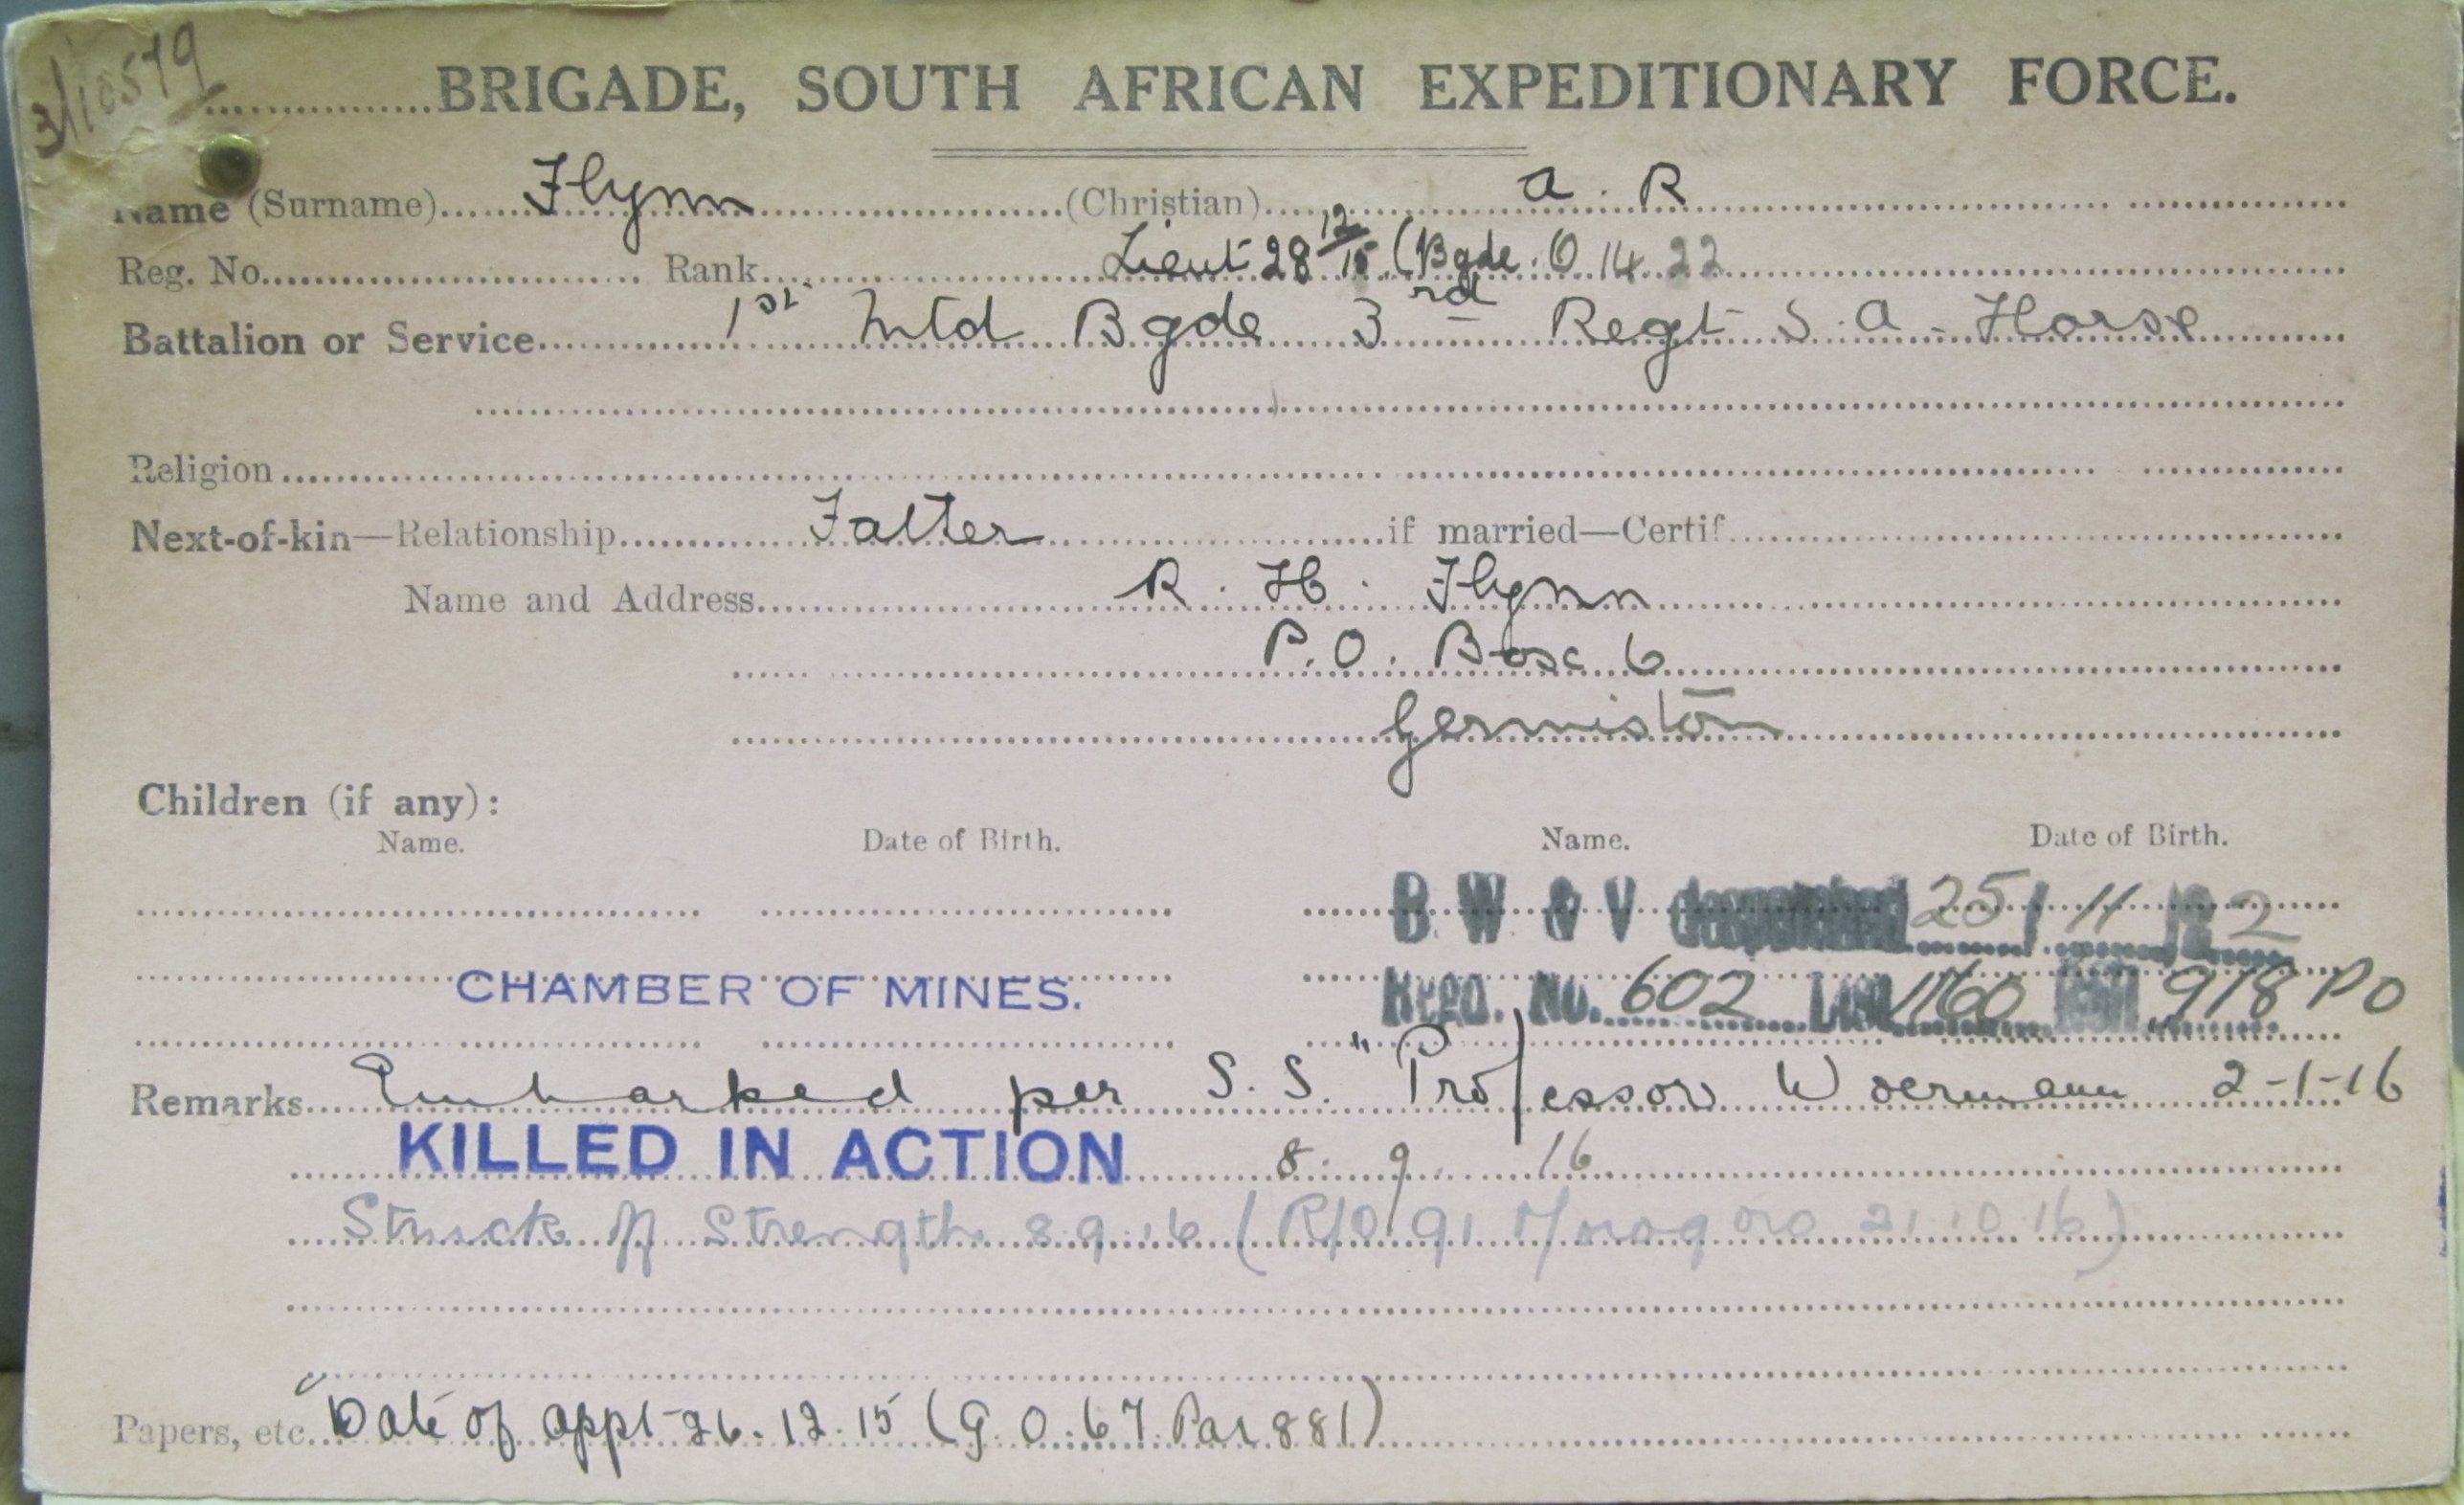 3/10579
BRIGADE, SOUTH AFRICAN EXPEDITIONARY FORCE.
Name (Surname) Flynn (Christian) A. R
Reg. No. Rank Lieut 28 12/15 (Bgde. O 14 22
Battalion or Service 1st Mtd Bgde 3rd Regt S.A. Horse
Religion
Next-of-kin—Relationship Father if married—Certif
Name and Address R. H. Flynn
P.O. Box 6
Germiston
Children (if any):
Name. Date of Birth. Name. Date of Birth.
B W & V despatched 25/11/22
CHAMBER OF MINES.
Regd. No. 602 List 1160 918 PO
Remarks Embarked per S.S. "Professor Woermann 2-1-16
KILLED IN ACTION 8. 9. 16
Struck off Strength 8.9.16 (R/O 91 Morogoro 21.10.16)
Papers, etc. Date of appt 26.12.15 (G.O. 67 Par 881)